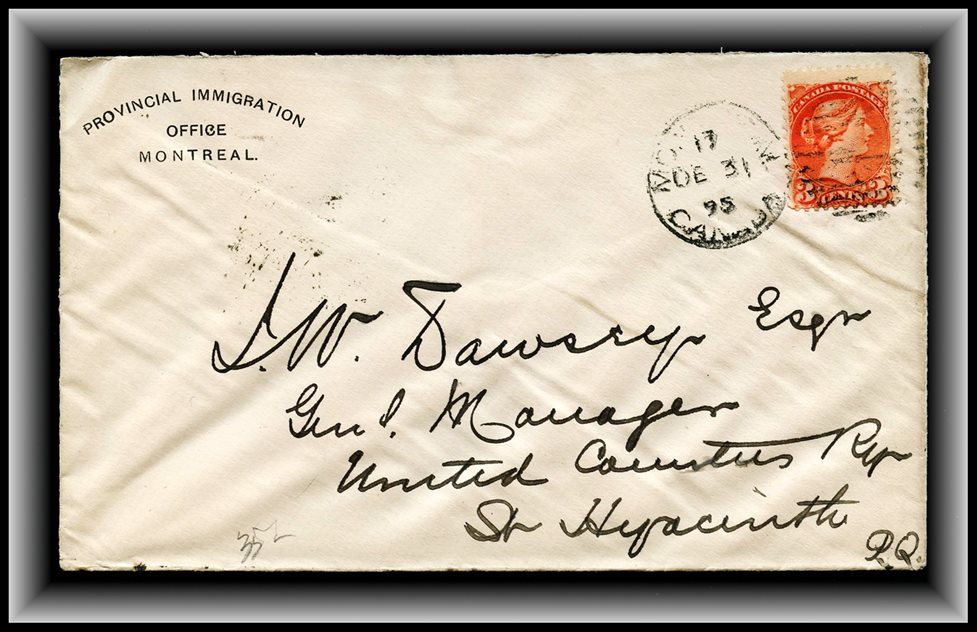 PROVINCIAL IMMIGRATION
OFFICE
MONTREAL.
CANADA POSTAGE
3 CENTS 3
17
DE 31
95
CANADA
J.W. Dawsey Esqr
Genl. Manager
United Counties Ry
St Hyacinthe
P.Q.